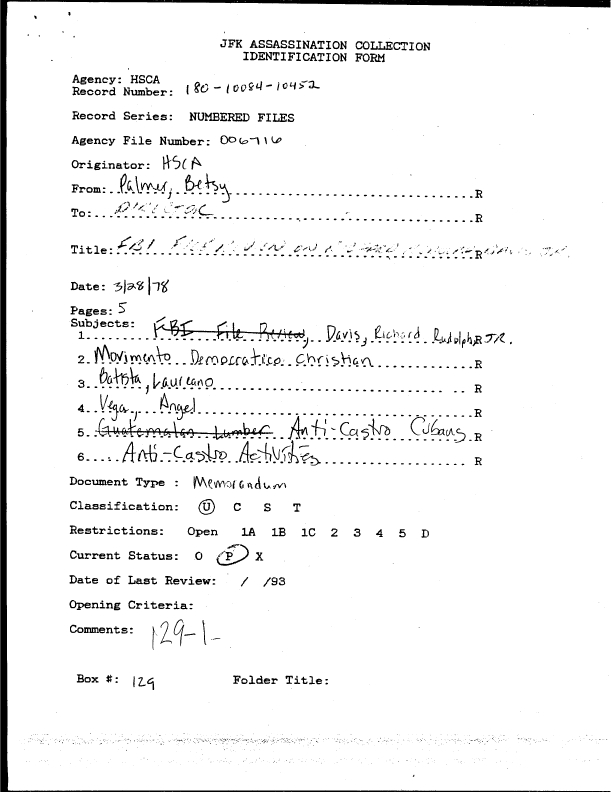 JFK ASSASSINATION COLLECTION
IDENTIFICATION FORM
Agency: HSCA
Record Number: 180-10084-10452
Record Series: NUMBERED FILES
Agency File Number: 006716
Originator: HSCA
From: Palmer, Betsy R
To: R
Title: FBI R
Date: 3/28/78
Pages: 5
Subjects:
1. FBI File Review, Davis, Richard Rudolph, R JR.
2. Movimento Democratico Christian R
3. Batista, Laureano R
4. Vega, Angel R
5. Guatemalan Lumber Anti-Castro Cubans R
6. Anti-Castro Activities R
Document Type : Memorandum
Classification: U C S T
Restrictions: Open 1A 1B 1C 2 3 4 5 D
Current Status: O P X
Date of Last Review: / /93
Opening Criteria:
Comments: 129-1
Box #: 129 Folder Title: